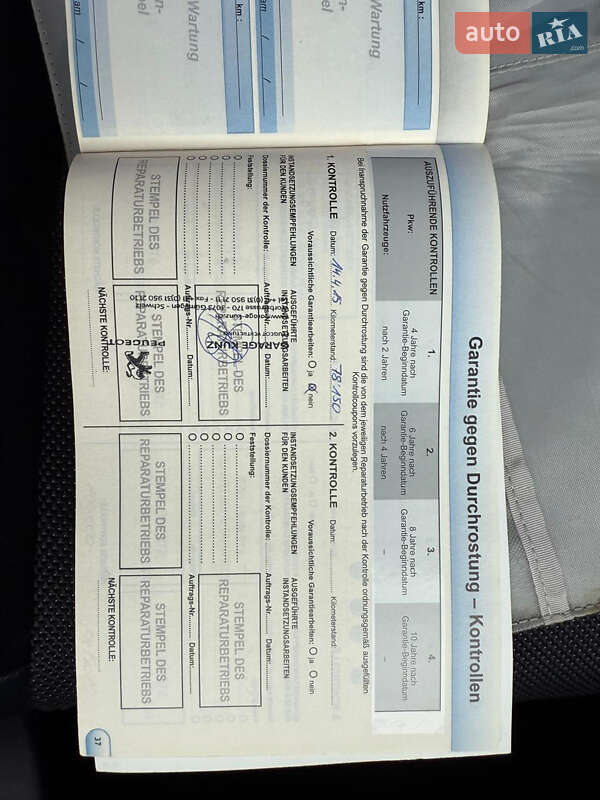 auto RIA.com
km :
Wartung
am / /
km :
Wartung
am / /
Garantie gegen Durchrostung – Kontrollen
AUSZUFÜHRENDE KONTROLLEN
1.
2.
3.
4.
Pkw:
4 Jahre nach
Garantie-Beginndatum
6 Jahre nach
Garantie-Beginndatum
8 Jahre nach
Garantie-Beginndatum
10 Jahre nach
Garantie-Beginndatum
Nutzfahrzeuge:
nach 2 Jahren
nach 4 Jahren
–
–
Bei Inanspruchnahme der Garantie gegen Durchrostung sind die von dem jeweiligen Reparaturbetrieb nach der Kontrolle ordnungsgemäß ausgefüllten
Kontrollcoupons vorzulegen.
1. KONTROLLE Datum: 14.4.15 Kilometerstand: 78'150
Voraussichtliche Garantiearbeiten: O ja O nein
INSTANDSETZUNGSEMPFEHLUNGEN
FÜR DEN KUNDEN
AUSGEFÜHRTE
INSTANDSETZUNGSARBEITEN
Dossiernummer der Kontrolle:
Auftrags-Nr. Datum:
Feststellung:
STEMPEL DES
REPARATURBETRIEBS
GARAGE KUNZ
www.garage-kunz
PEUGEOT
Auftrags-Nr. Datum:
STEMPEL DES
REPARATURBETRIEBS
STEMPEL DES
REPARATURBETRIEBS
NÄCHSTE KONTROLLE:
2. KONTROLLE Datum: Kilometerstand:
Voraussichtliche Garantiearbeiten: O ja O nein
INSTANDSETZUNGSEMPFEHLUNGEN
FÜR DEN KUNDEN
AUSGEFÜHRTE
INSTANDSETZUNGSARBEITEN
Dossiernummer der Kontrolle:
Auftrags-Nr. Datum:
Feststellung:
STEMPEL DES
REPARATURBETRIEBS
Auftrags-Nr. Datum:
STEMPEL DES
REPARATURBETRIEBS
STEMPEL DES
REPARATURBETRIEBS
NÄCHSTE KONTROLLE:
37